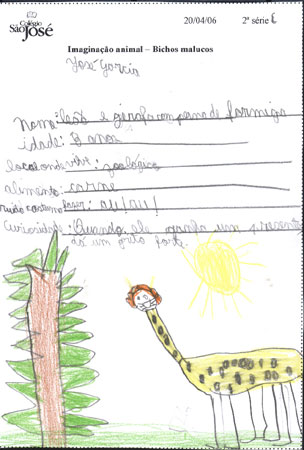 Colégio
São José
20/04/06 2ª série
Imaginação animal – Bichos malucos
José Garcia
Nome: leão e girafa com perna de formiga
idade: 8 anos
local onde vive: zoológico
alimento: carne
ruido costuma fazer: au/au!
Curiosidade: Quando ele ganha um presente
dá um grito forte.